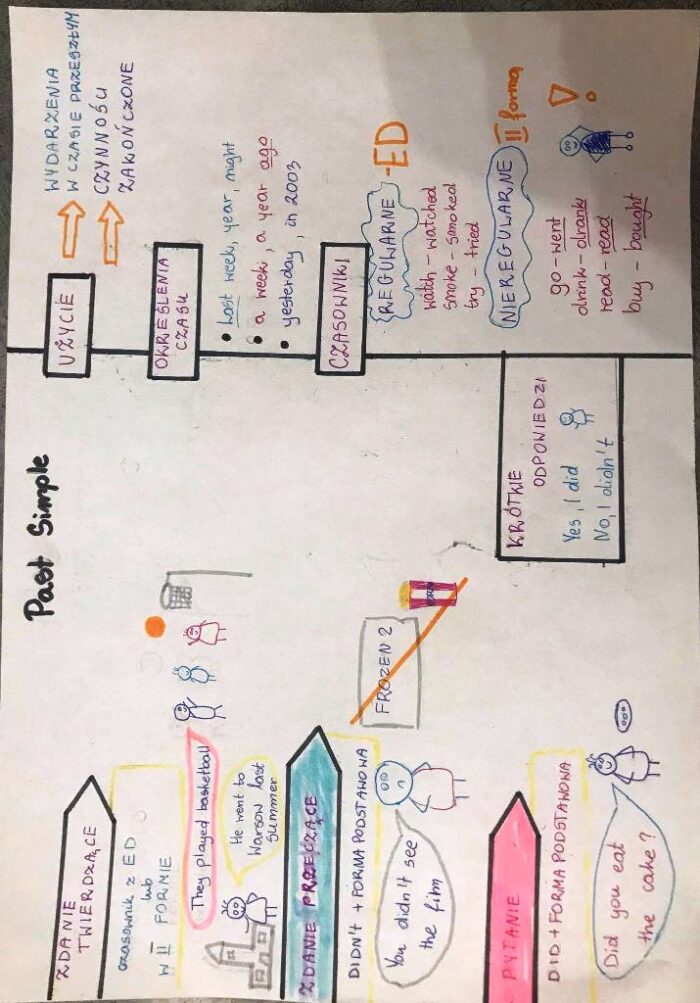 Past Simple
ZDANIE
TWIERDZĄCE
czasownik z ED
lub
w II FORMIE
They played basketball
He went to
Warsow last
summer
ZDANIE PRZECZĄCE
DIDN't + FORMA PODSTAWOWA
You didn't see
the film
FROZEN 2
PYTANIE
DID + FORMA PODSTAWOWA
Did you eat
the cake?
KRÓTKIE
ODPOWIEDZI
Yes, I did
No, I didn't
UŻYCIE
WYDARZENIA
W CZASIE PRZESZŁYM
CZYNNOŚCI
ZAKOŃCZONE
OKREŚLENIA
CZASU
• Last week, year, night
• a week, a year ago
• yesterday, in 2003
CZASOWNIKI
REGULARNE -ED
watch - watched
smoke - smoked
try - tried
NIEREGULARNE II forma
go - went
drink - drank
read - read
buy - bought